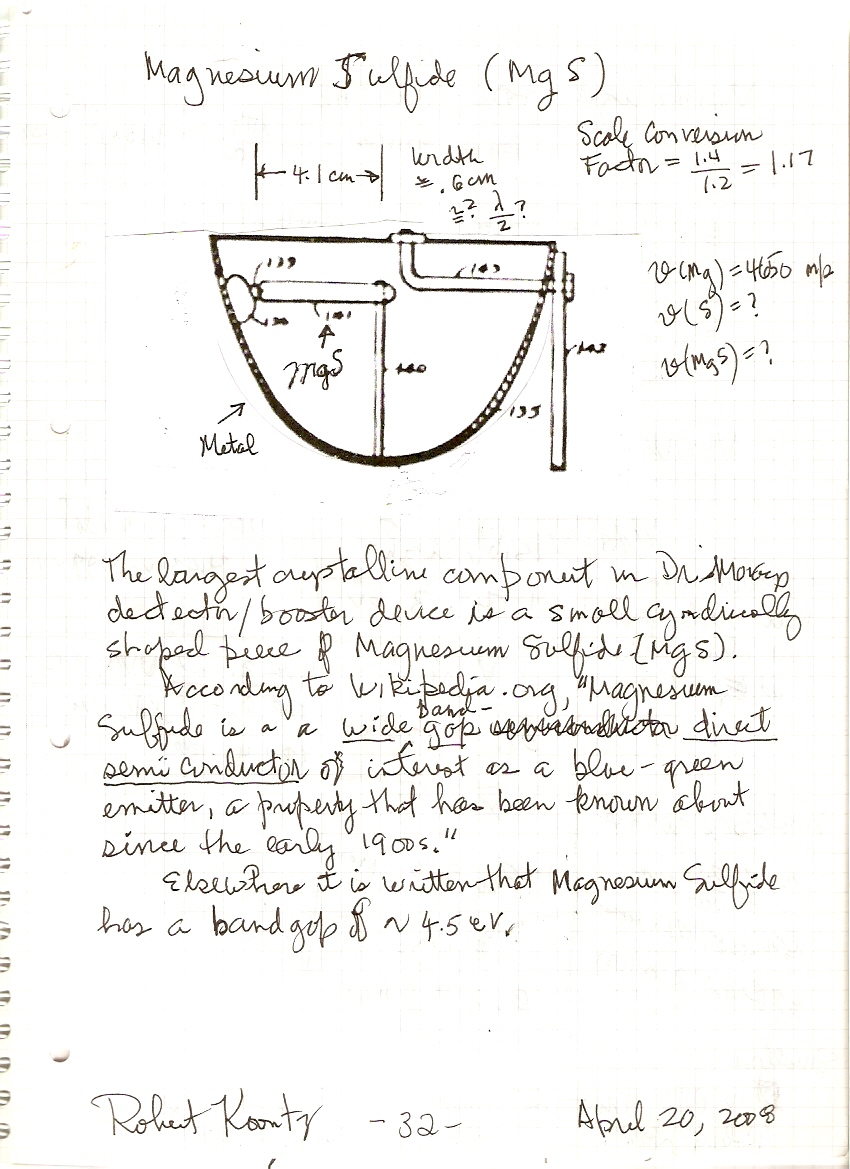 Magnesium Sulfide (MgS)
Scale Conversion
Factor = 1.4/1.2 = 1.17
width
≅ .6 cm
≅? λ/2?
4.1 cm
v(Mg) = 4650 m/s
v(S) = ?
v(MgS) = ?
139
143
141
MgS
140
135
Metal
The largest crystalline component in Dr. Moray's
detector/booster device is a small cylindrically
shaped piece of Magnesium Sulfide (MgS).
According to Wikipedia.org, "Magnesium
Sulfide is a a wide band-gap semiconductor direct
semiconductor of interest as a blue-green
emitter, a property that has been known about
since the early 1900s."
Elsewhere it is written that Magnesium Sulfide
has a bandgap of ~ 4.5 eV.
Robert Koontz - 32 - April 20, 2008